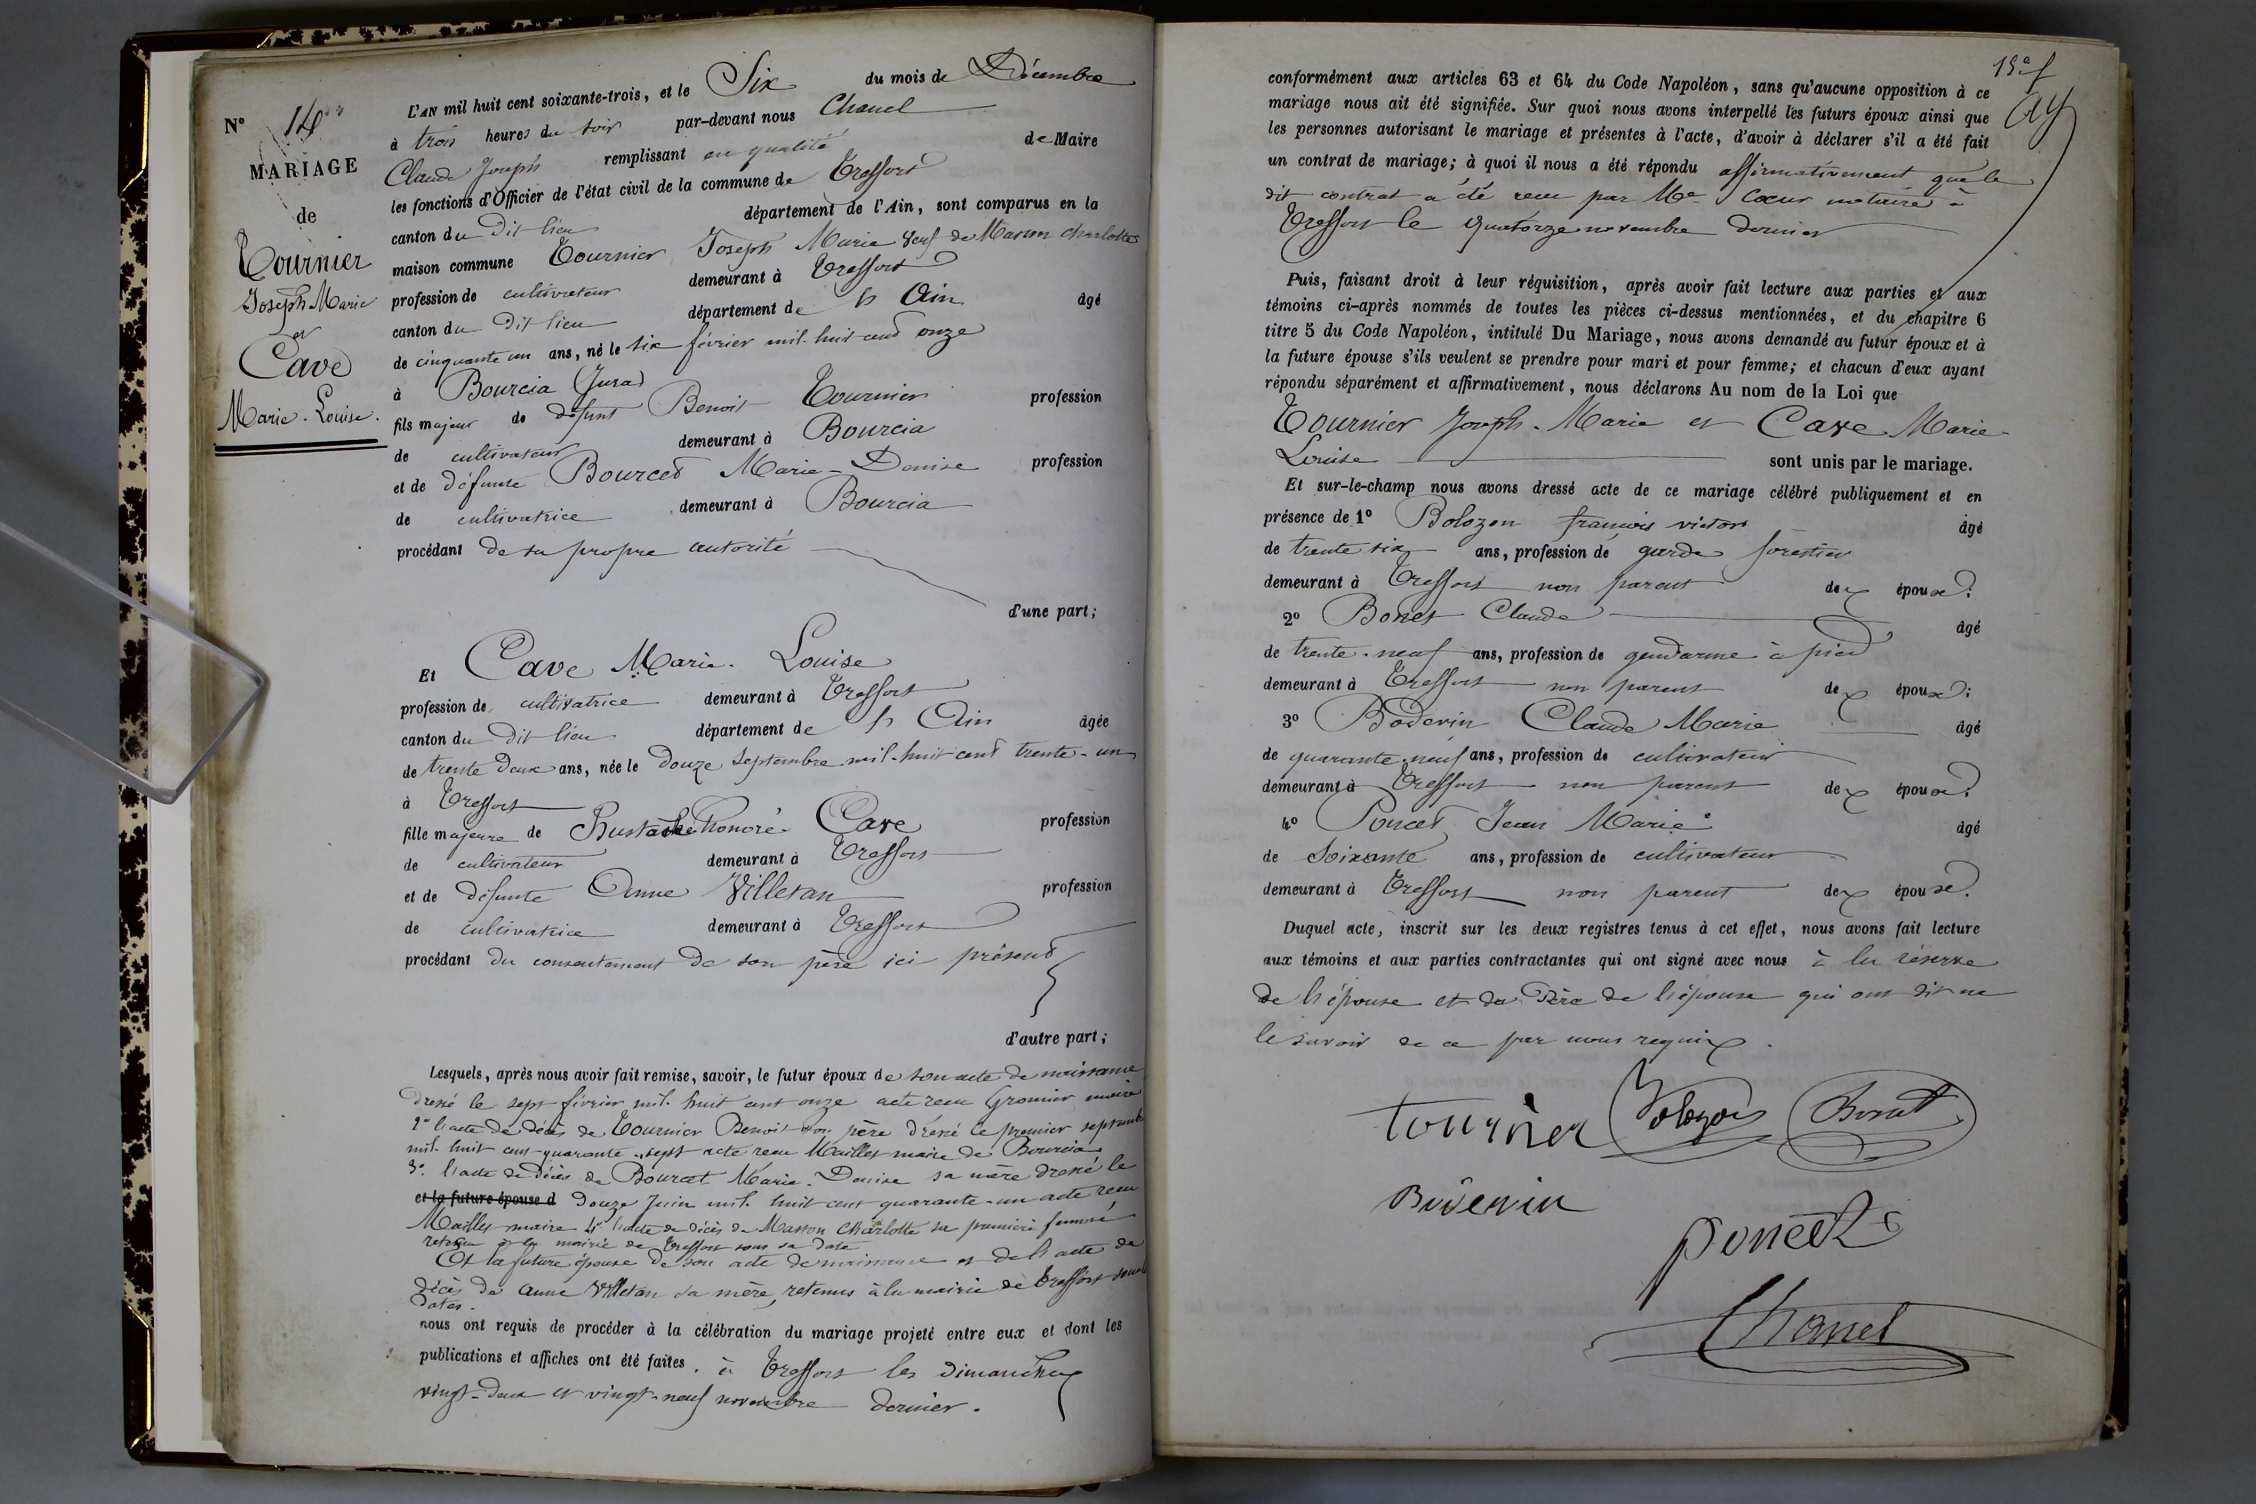 Nº 14
MARIAGE
de
Tournier
Joseph Marie
et
Cave
Marie-Louise.
L'AN mil huit cent soixante-trois, et le Six du mois de Décembre
à trois heures du soir par-devant nous Chanel
Claude Joseph remplissant en qualité de Maire
les fonctions d'Officier de l'état civil de la commune de Treffort
canton du dit lieu département de l'Ain, sont comparus en la
maison commune Tournier Joseph Marie veuf de Masson Charlotte
profession de cultivateur demeurant à Treffort
canton du dit lieu département de l'Ain âgé
de cinquante un ans, né le six février mil huit cent onze
à Bourcia (Jura)
fils majeur de défunt Benoit Tournier profession
de cultivateur demeurant à Bourcia
et de défunte Bourcet Marie-Denise profession
de cultivatrice demeurant à Bourcia
procédant de sa propre autorité
d'une part;
Et Cave Marie-Louise
profession de cultivatrice demeurant à Treffort
canton du dit lieu département de l'Ain âgée
de trente deux ans, née le douze septembre mil-huit cent trente-un
à Treffort
fille majeure de honoré Cave profession
de cultivateur demeurant à Treffort
et de défunte Anne Villetan profession
de cultivatrice demeurant à Treffort
procédant du consentement de son père ici présent
d'autre part;
Lesquels, après nous avoir fait remise, savoir, le futur époux de son acte de naissance
dressé le sept février mil huit cent onze acte reçu Gromier maire
2º l'acte de décès de Tournier Benoit son père dressé le premier septembre
mil huit cent quarante-sept acte reçu Maillet maire de Bourcia
3º l'acte de décès de Bourcet Marie-Denise sa mère dressé le
et la future épouse d douze juin mil huit cent quarante-un acte reçu
Maillet maire 4º l'acte de décès de Masson Charlotte sa première femme
retenu à la mairie de Treffort sous sa date
Et la future épouse de son acte de naissance et de l'acte de
décès de Anne Villetan sa mère, retenus à la mairie de Treffort sous
dates.
nous ont requis de procéder à la célébration du mariage projeté entre eux et dont les
publications et affiches ont été faites. à Treffort les dimanches
vingt-deux et vingt-neuf novembre dernier.
conformément aux articles 63 et 64 du Code Napoléon, sans qu'aucune opposition à ce
mariage nous ait été signifiée. Sur quoi nous avons interpellé les futurs époux ainsi que
les personnes autorisant le mariage et présentes à l'acte, d'avoir à déclarer s'il a été fait
un contrat de mariage; à quoi il nous a été répondu affirmativement que le
dit contrat a été reçu par Me Cœur notaire à
Treffort le quatorze novembre dernier
Puis, faisant droit à leur réquisition, après avoir fait lecture aux parties et aux
témoins ci-après nommés de toutes les pièces ci-dessus mentionnées, et du chapitre 6
titre 5 du Code Napoléon, intitulé Du Mariage, nous avons demandé au futur époux et à
la future épouse s'ils veulent se prendre pour mari et pour femme; et chacun d'eux ayant
répondu séparément et affirmativement, nous déclarons Au nom de la Loi que
Tournier Joseph-Marie et Cave Marie
Louise sont unis par le mariage.
Et sur-le-champ nous avons dressé acte de ce mariage célébré publiquement et en
présence de 1º Bolozon françois victor âgé
de trente six ans, profession de garde forestier
demeurant à Treffort non parent des époux;
2º Bonet Claude âgé
de trente-neuf ans, profession de gendarme à pied
demeurant à Treffort non parent des époux;
3º Boderin Claude Marie âgé
de quarante-neuf ans, profession de cultivateur
demeurant à Treffort non parent des époux;
4º Poncet Jean Marie âgé
de soixante ans, profession de cultivateur
demeurant à Treffort non parent des époux.
Duquel acte, inscrit sur les deux registres tenus à cet effet, nous avons fait lecture
aux témoins et aux parties contractantes qui ont signé avec nous à la réserve
de l'épouse et du Père de l'épouse qui ont dit ne
le savoir de ce par nous requis.
Tournier Bolozon Bonet
Boderin
Poncet
Chanel